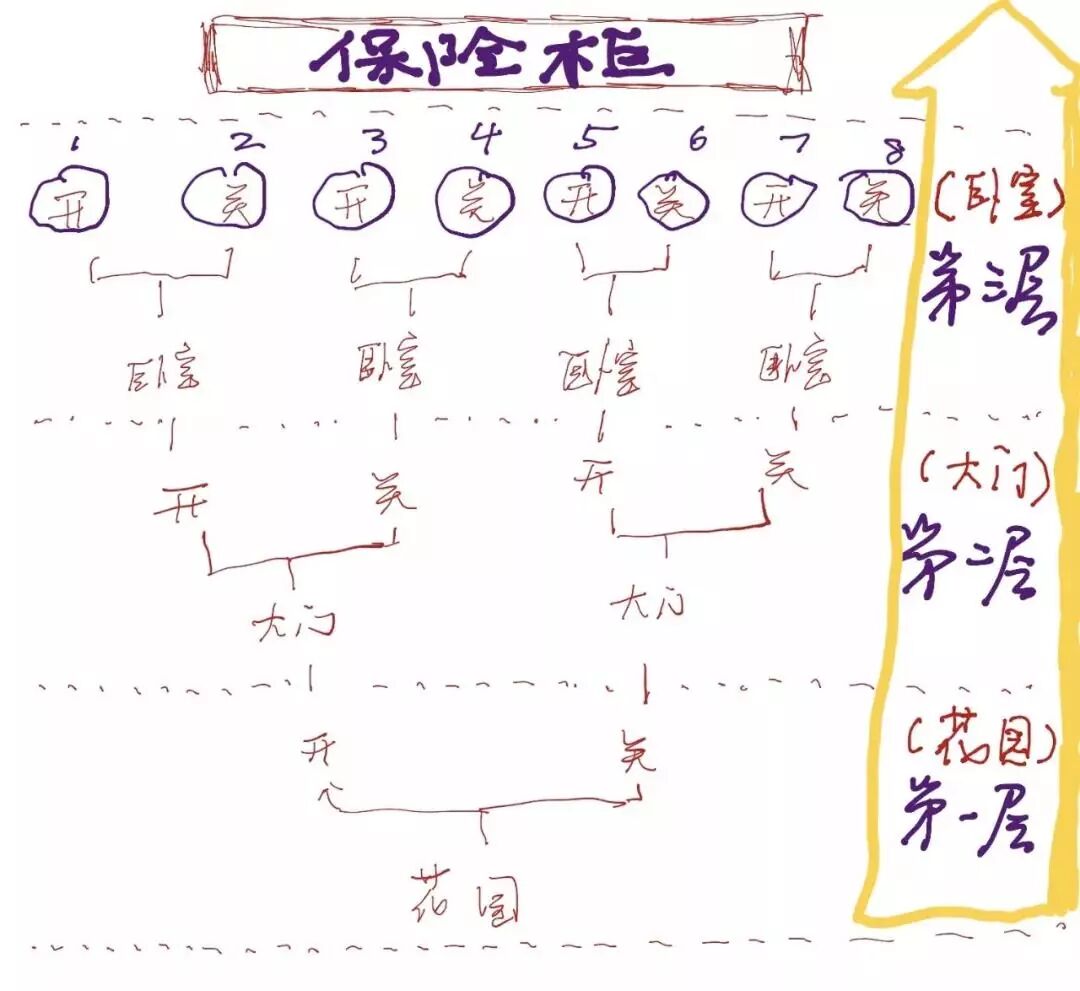 保险柜
1 2 3 4 5 6 7 8
开 关 开 关 开 关 开 关
(卧室)
第三层
卧室 卧室 卧室 卧室
开 关 开 关
(大门)
第二层
大门 大门
开 关
(花园)
第一层
花园